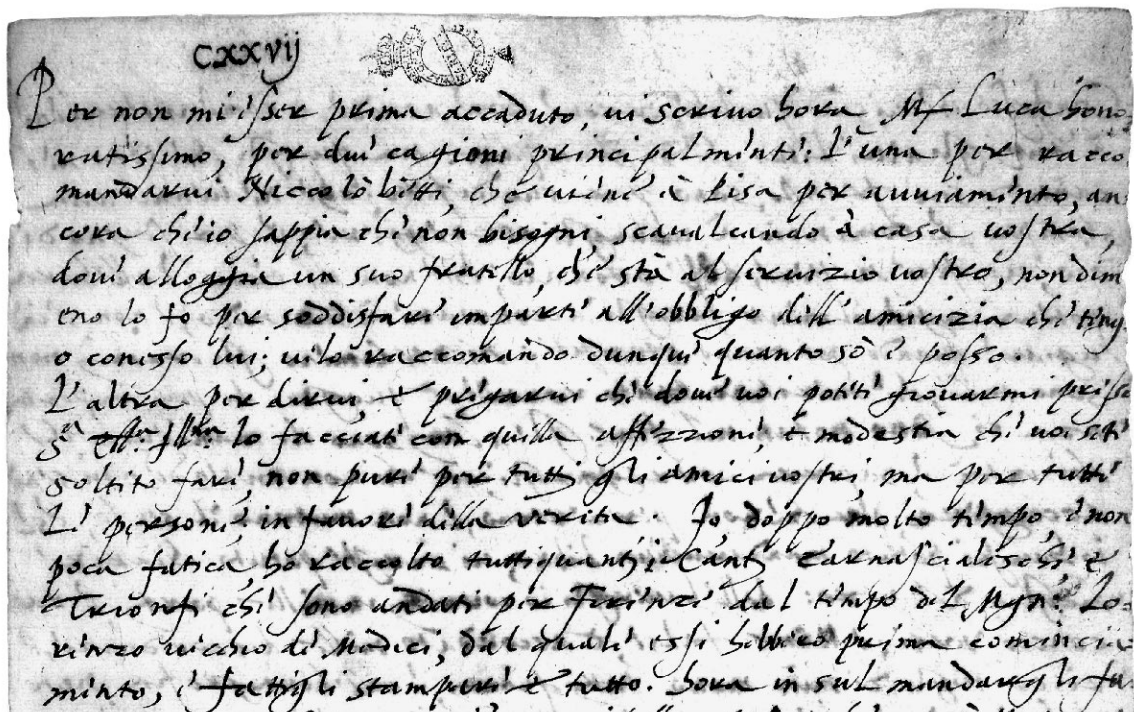 CXXVIJ
Per non mi esser prima accaduto, vi scrivo hora Mſ Luca hono
ratissimo, per due cagioni principalmente: L'una per racco
mandarvi Niccolò betti, che viene à Pisa per avviamento, an
cora che io sappia che non bisogni, scavalcando à casa vostra,
dove alloggia un suo fratello, che stà al servizio vostro, nondim
eno lo fo per soddisfare imparte all'obbligo dell'amicizia che teng
o conesso lui; velo raccomando dunque quanto sò e posso.
L'altra per dirvi, e pregarvi che dove voi potete giovarmi presso
S. Ecc.ª Ill.ma lo facciate com quella affezzione, e modestia che voi sete
solito fare, non pure per tutti gli amici vostri, ma per tutte
Le persone, in favore della verita. Io doppo molto tempo, e non
poca fatica, ho raccolto tutti quanti i Canti Carnascialeschi e
Trionfi che sono andati per Firenze dal tempo del Mgn.co Lo=
renzo vecchio de Medici, dal quale essi hebbero prima comincia
mento, e fattigli stampare e tutto. hora in sul mandargli fu